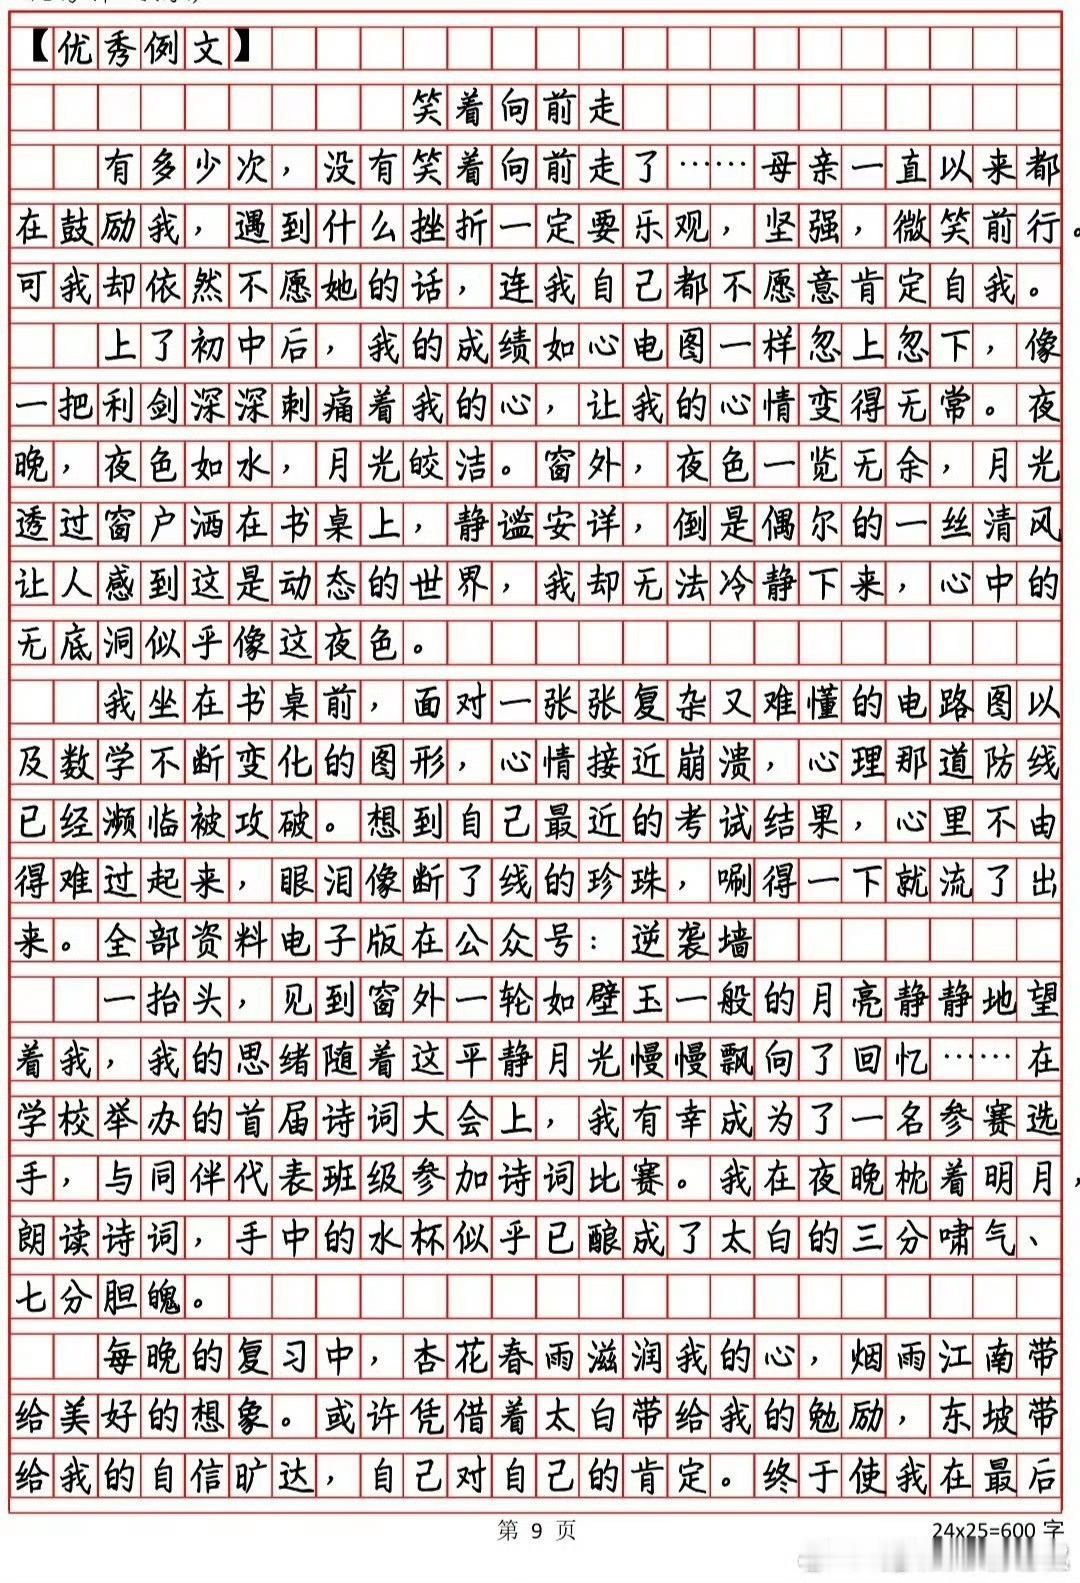 【优秀例文】
笑着向前走
有多少次，没有笑着向前走了……母亲一直以来都
在鼓励我，遇到什么挫折一定要乐观，坚强，微笑前行。
可我却依然不愿她的话，连我自己都不愿意肯定自我。
上了初中后，我的成绩如心电图一样忽上忽下，像
一把利剑深深刺痛着我的心，让我的心情变得无常。夜
晚，夜色如水，月光皎洁。窗外，夜色一览无余，月光
透过窗户洒在书桌上，静谧安详，倒是偶尔的一丝清风
让人感到这是动态的世界，我却无法冷静下来，心中的
无底洞似乎像这夜色。
我坐在书桌前，面对一张张复杂又难懂的电路图以
及数学不断变化的图形，心情接近崩溃，心理那道防线
已经濒临被攻破。想到自己最近的考试结果，心里不由
得难过起来，眼泪像断了线的珍珠，唰得一下就流了出
来。全部资料电子版在公众号：逆袭墙
一抬头，见到窗外一轮如壁玉一般的月亮静静地望
着我，我的思绪随着这平静月光慢慢飘向了回忆……在
学校举办的首届诗词大会上，我有幸成为了一名参赛选
手，与同伴代表班级参加诗词比赛。我在夜晚枕着明月，
朗读诗词，手中的水杯似乎已酿成了太白的三分啸气、
七分胆魄。
每晚的复习中，杏花春雨滋润我的心，烟雨江南带
给美好的想象。或许凭借着太白带给我的勉励，东坡带
给我的自信旷达，自己对自己的肯定。终于使我在最后
第 9 页
24x25=600 字